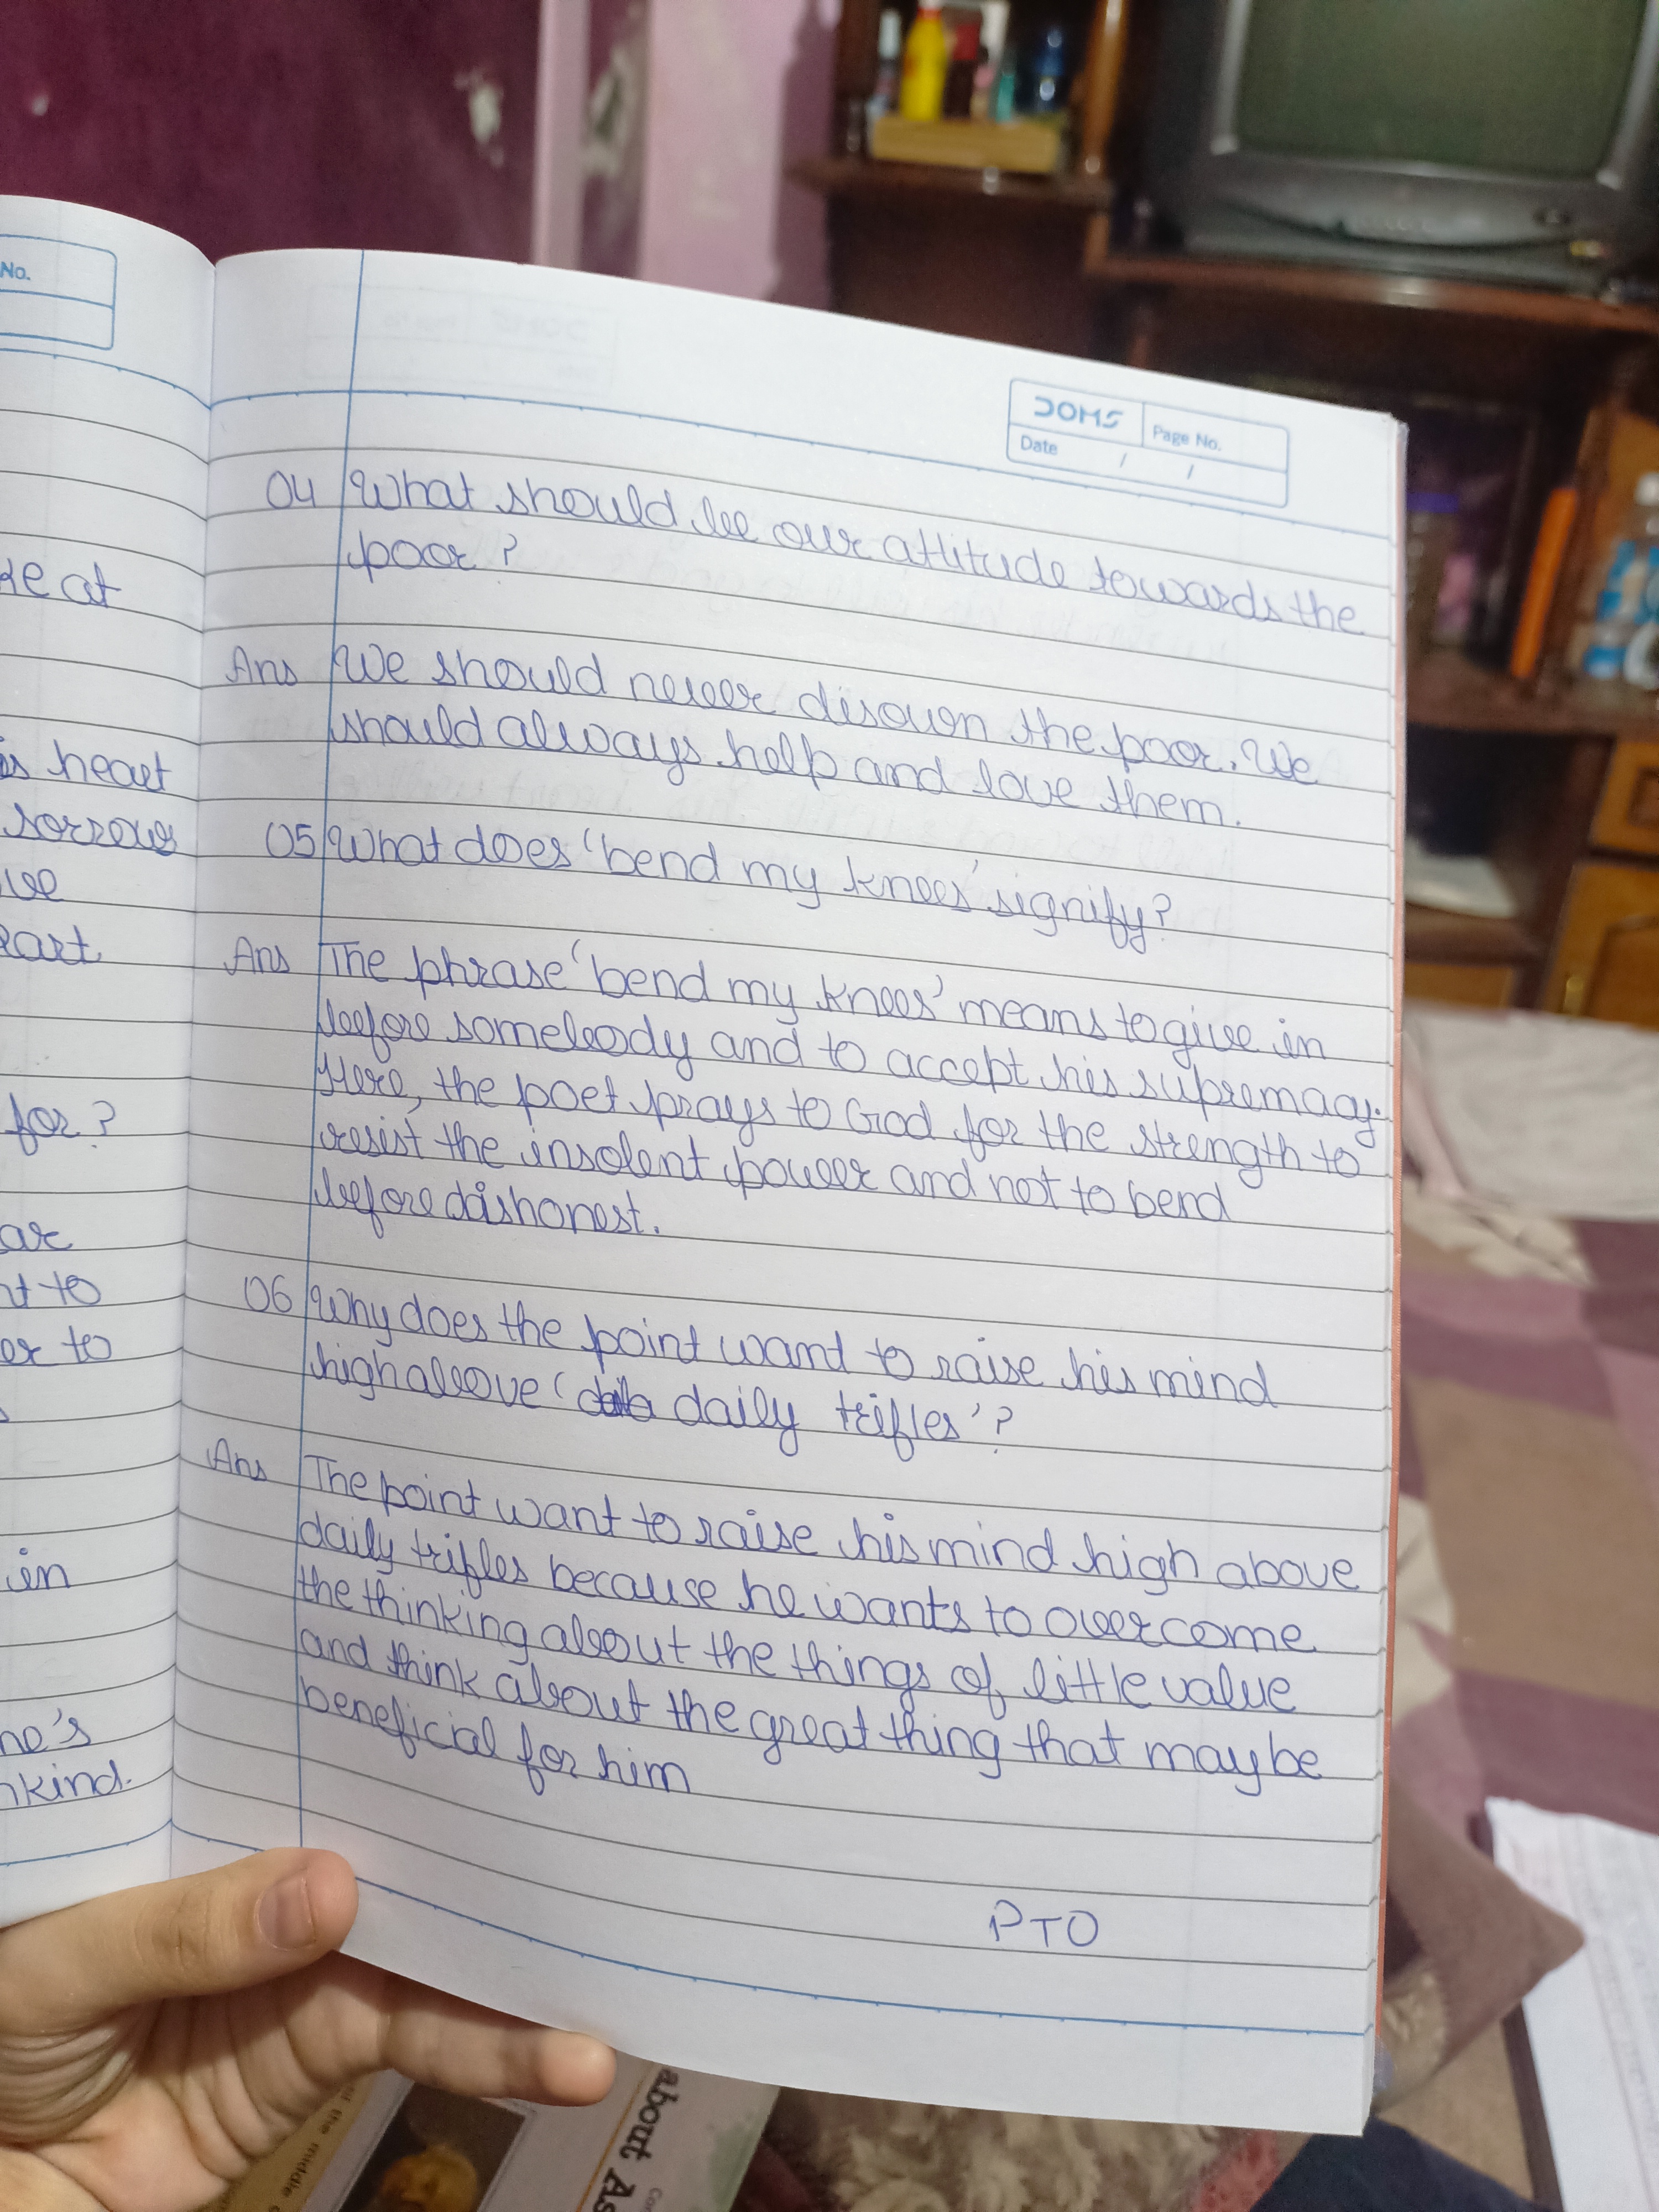 No.
ke at
is heart
sorrows
ve
eart
for?
ar
nt to
er to
in
ne's
nkind.
DOMS
Page No.
Date / /
04 What should be our attitude towards the
poor?
Ans We should never disown the poor. We
should always help and love them.
05 What does 'bend my knees' signify?
Ans The phrase 'bend my knees' means to give in
before somebody and to accept his supremacy.
Here, the poet prays to God for the strength to
resist the insolent power and not to bend
before dishonest.
06 Why does the point want to raise his mind
high above ' daily trifles'?
Ans The point want to raise his mind high above
daily trifles because he wants to overcome
the thinking about the things of little value
and think about the great thing that may be
beneficial for him
PTO
about As
the middle